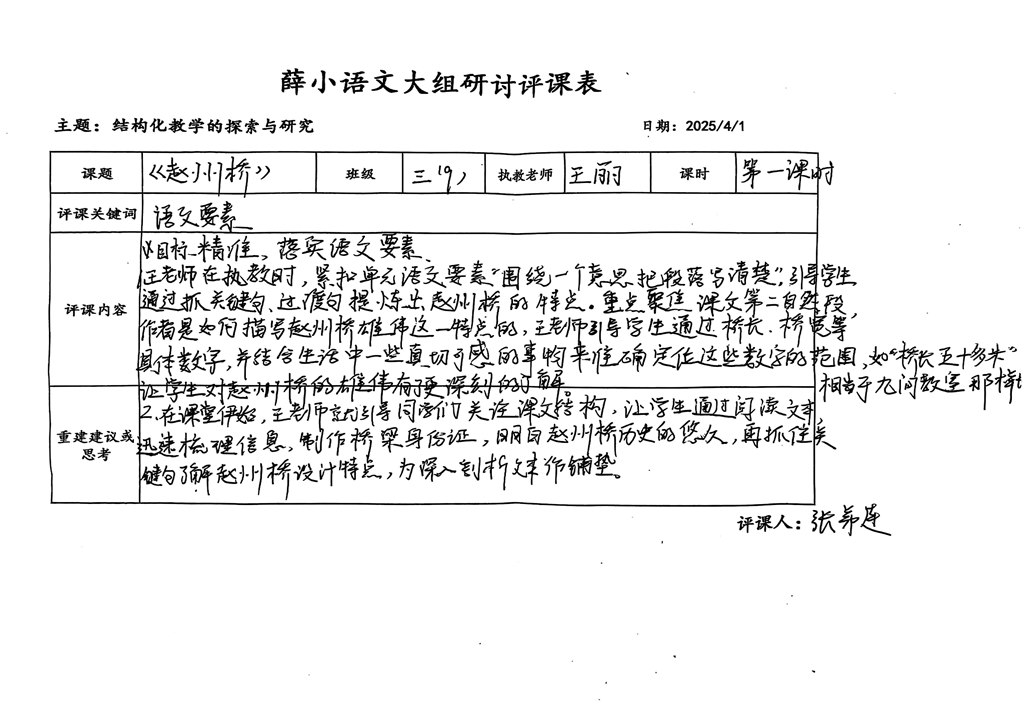 薛小语文大组研讨评课表
主题：结构化教学的探索与研究 日期：2025/4/1
课题 《赵州桥》 班级 三(9) 执教老师 王丽 课时 第一课时
评课关键词 语文要素
评课内容
1、目标精准，落实语文要素、
王老师在执教时，紧扣单元语文要素“围绕一个意思把段落写清楚”，引导学生
通过抓关键句、过渡句提炼出赵州桥的特点。重点聚焦课文第二自然段
作者是如何描写赵州桥雄伟这一特点的，王老师引导学生通过桥长、桥宽等
具体数字，并结合生活中一些真切可感的事物来准确定位这些数字的范围，如“桥长五十多米”
相当于九间教室那样
让学生对赵州桥的雄伟有了更深刻的了解。
重建建议或思考
2、在课堂伊始，王老师就引导同学们关注课文结构，让学生通过阅读文本，
迅速梳理信息，制作桥梁身份证，明白赵州桥历史的悠久，再抓住关
键句了解赵州桥设计特点，为深入剖析文本作铺垫。
评课人：张 连